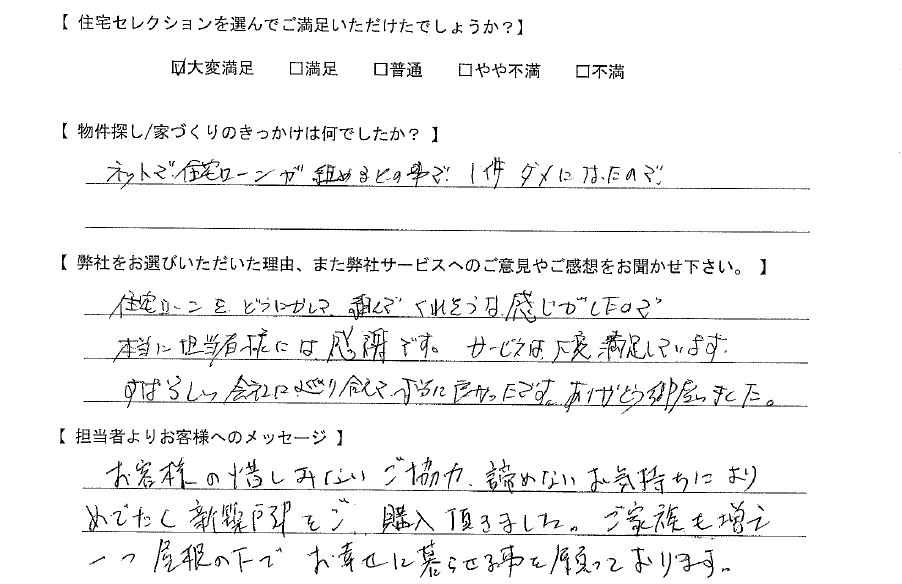 【 住宅セレクションを選んでご満足いただけたでしょうか?】
☑大変満足 □満足 □普通 □やや不満 □不満
【 物件探し/家づくりのきっかけは何でしたか? 】
ネットで住宅ローンが組めるとの事で 1件 ダメになったので
【 弊社をお選びいただいた理由、また弊社サービスへのご意見やご感想をお聞かせ下さい。 】
住宅ローンを どうにかして 組んで くれそうな 感じがしたので
本当に担当者様には感謝です。 サービスは大変満足しています。
すばらしい会社に巡り合えて 本当に良かったです。ありがとう御座いました。
【 担当者よりお客様へのメッセージ 】
お客様の惜しみないご協力、諦めないお気持ちにより
めでたく新築戸建をご 購入頂きました。ご家族も増え
一つ屋根の下で お幸せに暮らせる事を願っております。